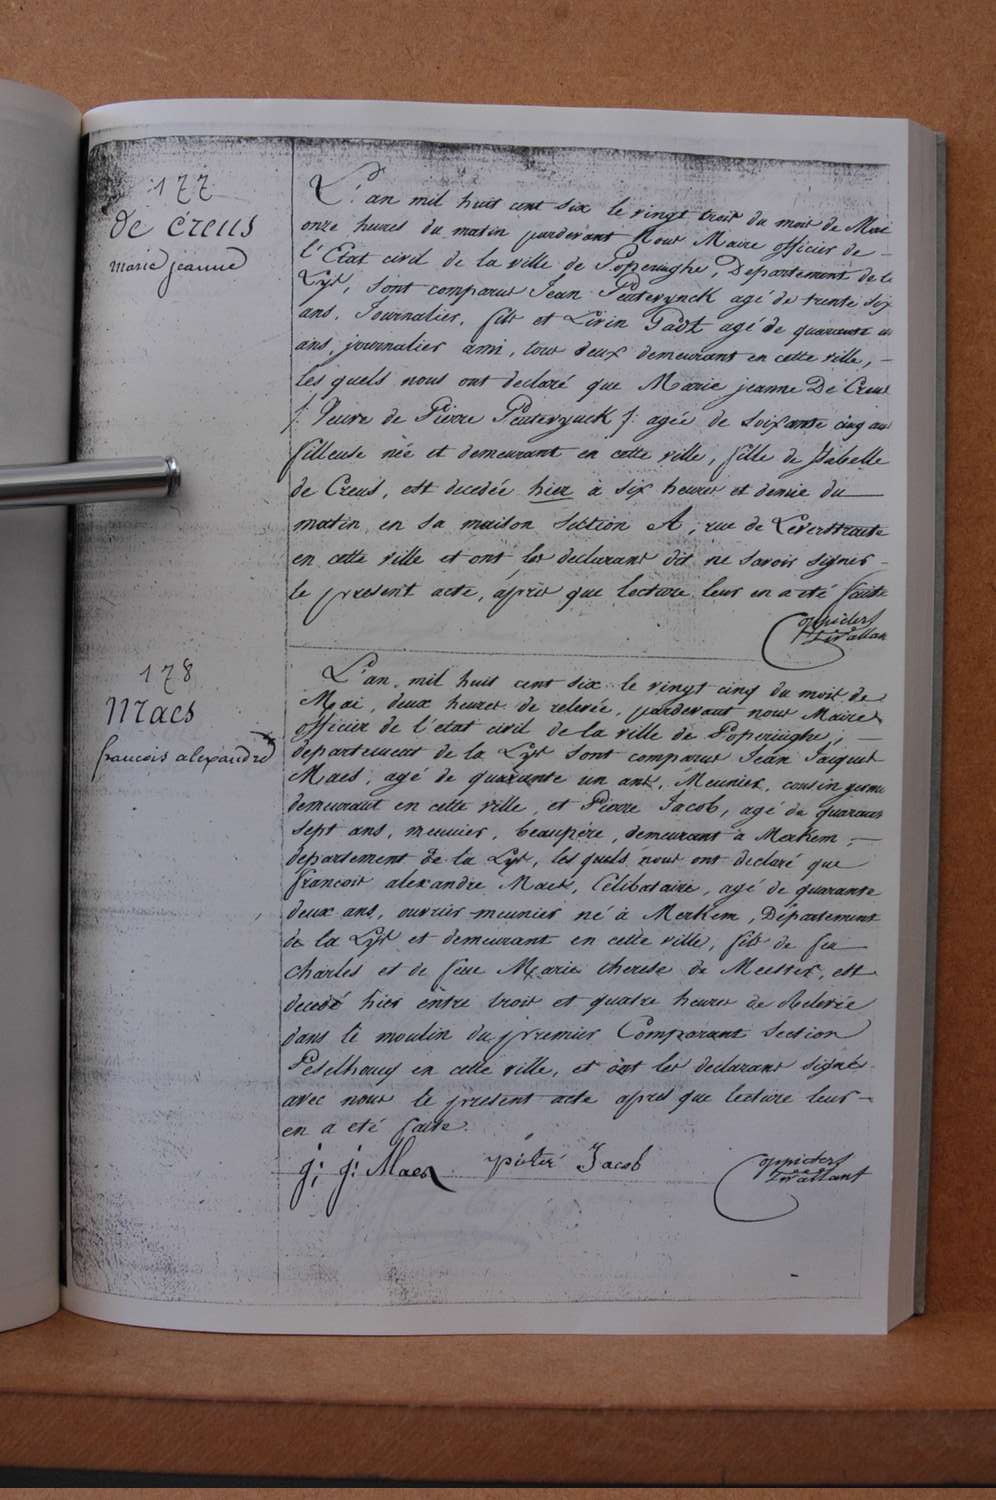 177
de Creus
marie jeanne
L'an mil huit cent six le vingt trois du mois de Mai
onze heures du matin pardevant Nous Maire officier de
l'Etat civil de la ville de Poperinghe, Departement de la
Lys, sont comparus Jean Peuterynck agé de trente six
ans, Journalier, fils et Livin Padt agé de quarante
ans, journalier ami, tous deux demeurant en cette ville, —
les quels nous ont declaré que Marie jeanne De Creus
/: Veuve de Pierre Peuterynck :/ agée de soixante cinq ans
filleuse née et demeurant en cette ville, fille de Isabelle
de Creus, est decedée hier à six heures et demie du —
matin en sa maison Section A, rue de
en cette ville et ont les declarans dit ne savoir signer —
le present acte, après que lecture leur en a été faite
178
Maes
francois alexandre
L'an mil huit cent six le vingt cinq du mois de
Mai, deux heures de relevée, pardevant nous Maire
officier de l'etat civil de la ville de Poperinghe, —
departement de la Lys sont comparus Jean Jacques
Maes, agé de quarante un ans, Meunier, cousin germ
demeurant en cette ville, et Pierre Jacob, agé de quarante
sept ans, meunier, beaupère, demeurant à Merkem, —
departement de la Lys, les quels nous ont declaré que
francois alexandre Maes, Celibataire, agé de quarante
deux ans, ouvrier meunier né à Merkem, Département
de la Lys et demeurant en cette ville, fils de feu —
Charles et de feue Marie therese de Meester, est
decedé hier entre trois et quatre heures de Relevée
dans le moulin du premier Comparant Section
Peselhoucq en cette ville, et ont les declarans signés
avec nous le present acte apres que lecture leur —
en a été faite.
j: j: Maes pieter Jacob